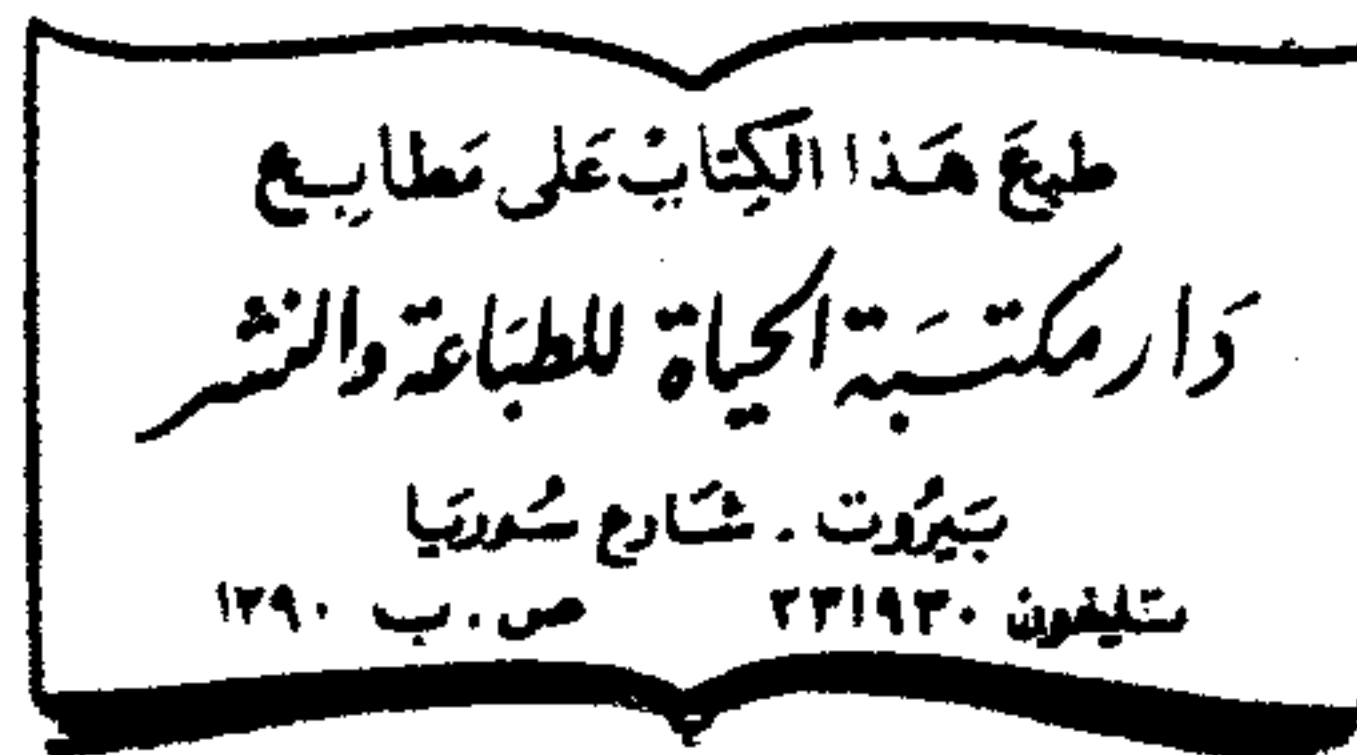 طبعَ هَذا الكِتابُ عَلى مَطابِع
دَار مكتبَة الحياة للطبَاعة والنشر
بَيرُوت . شَارع سُوريَا
تليفون ٢٣١٩٣٠ ص . ب ١٣٩٠